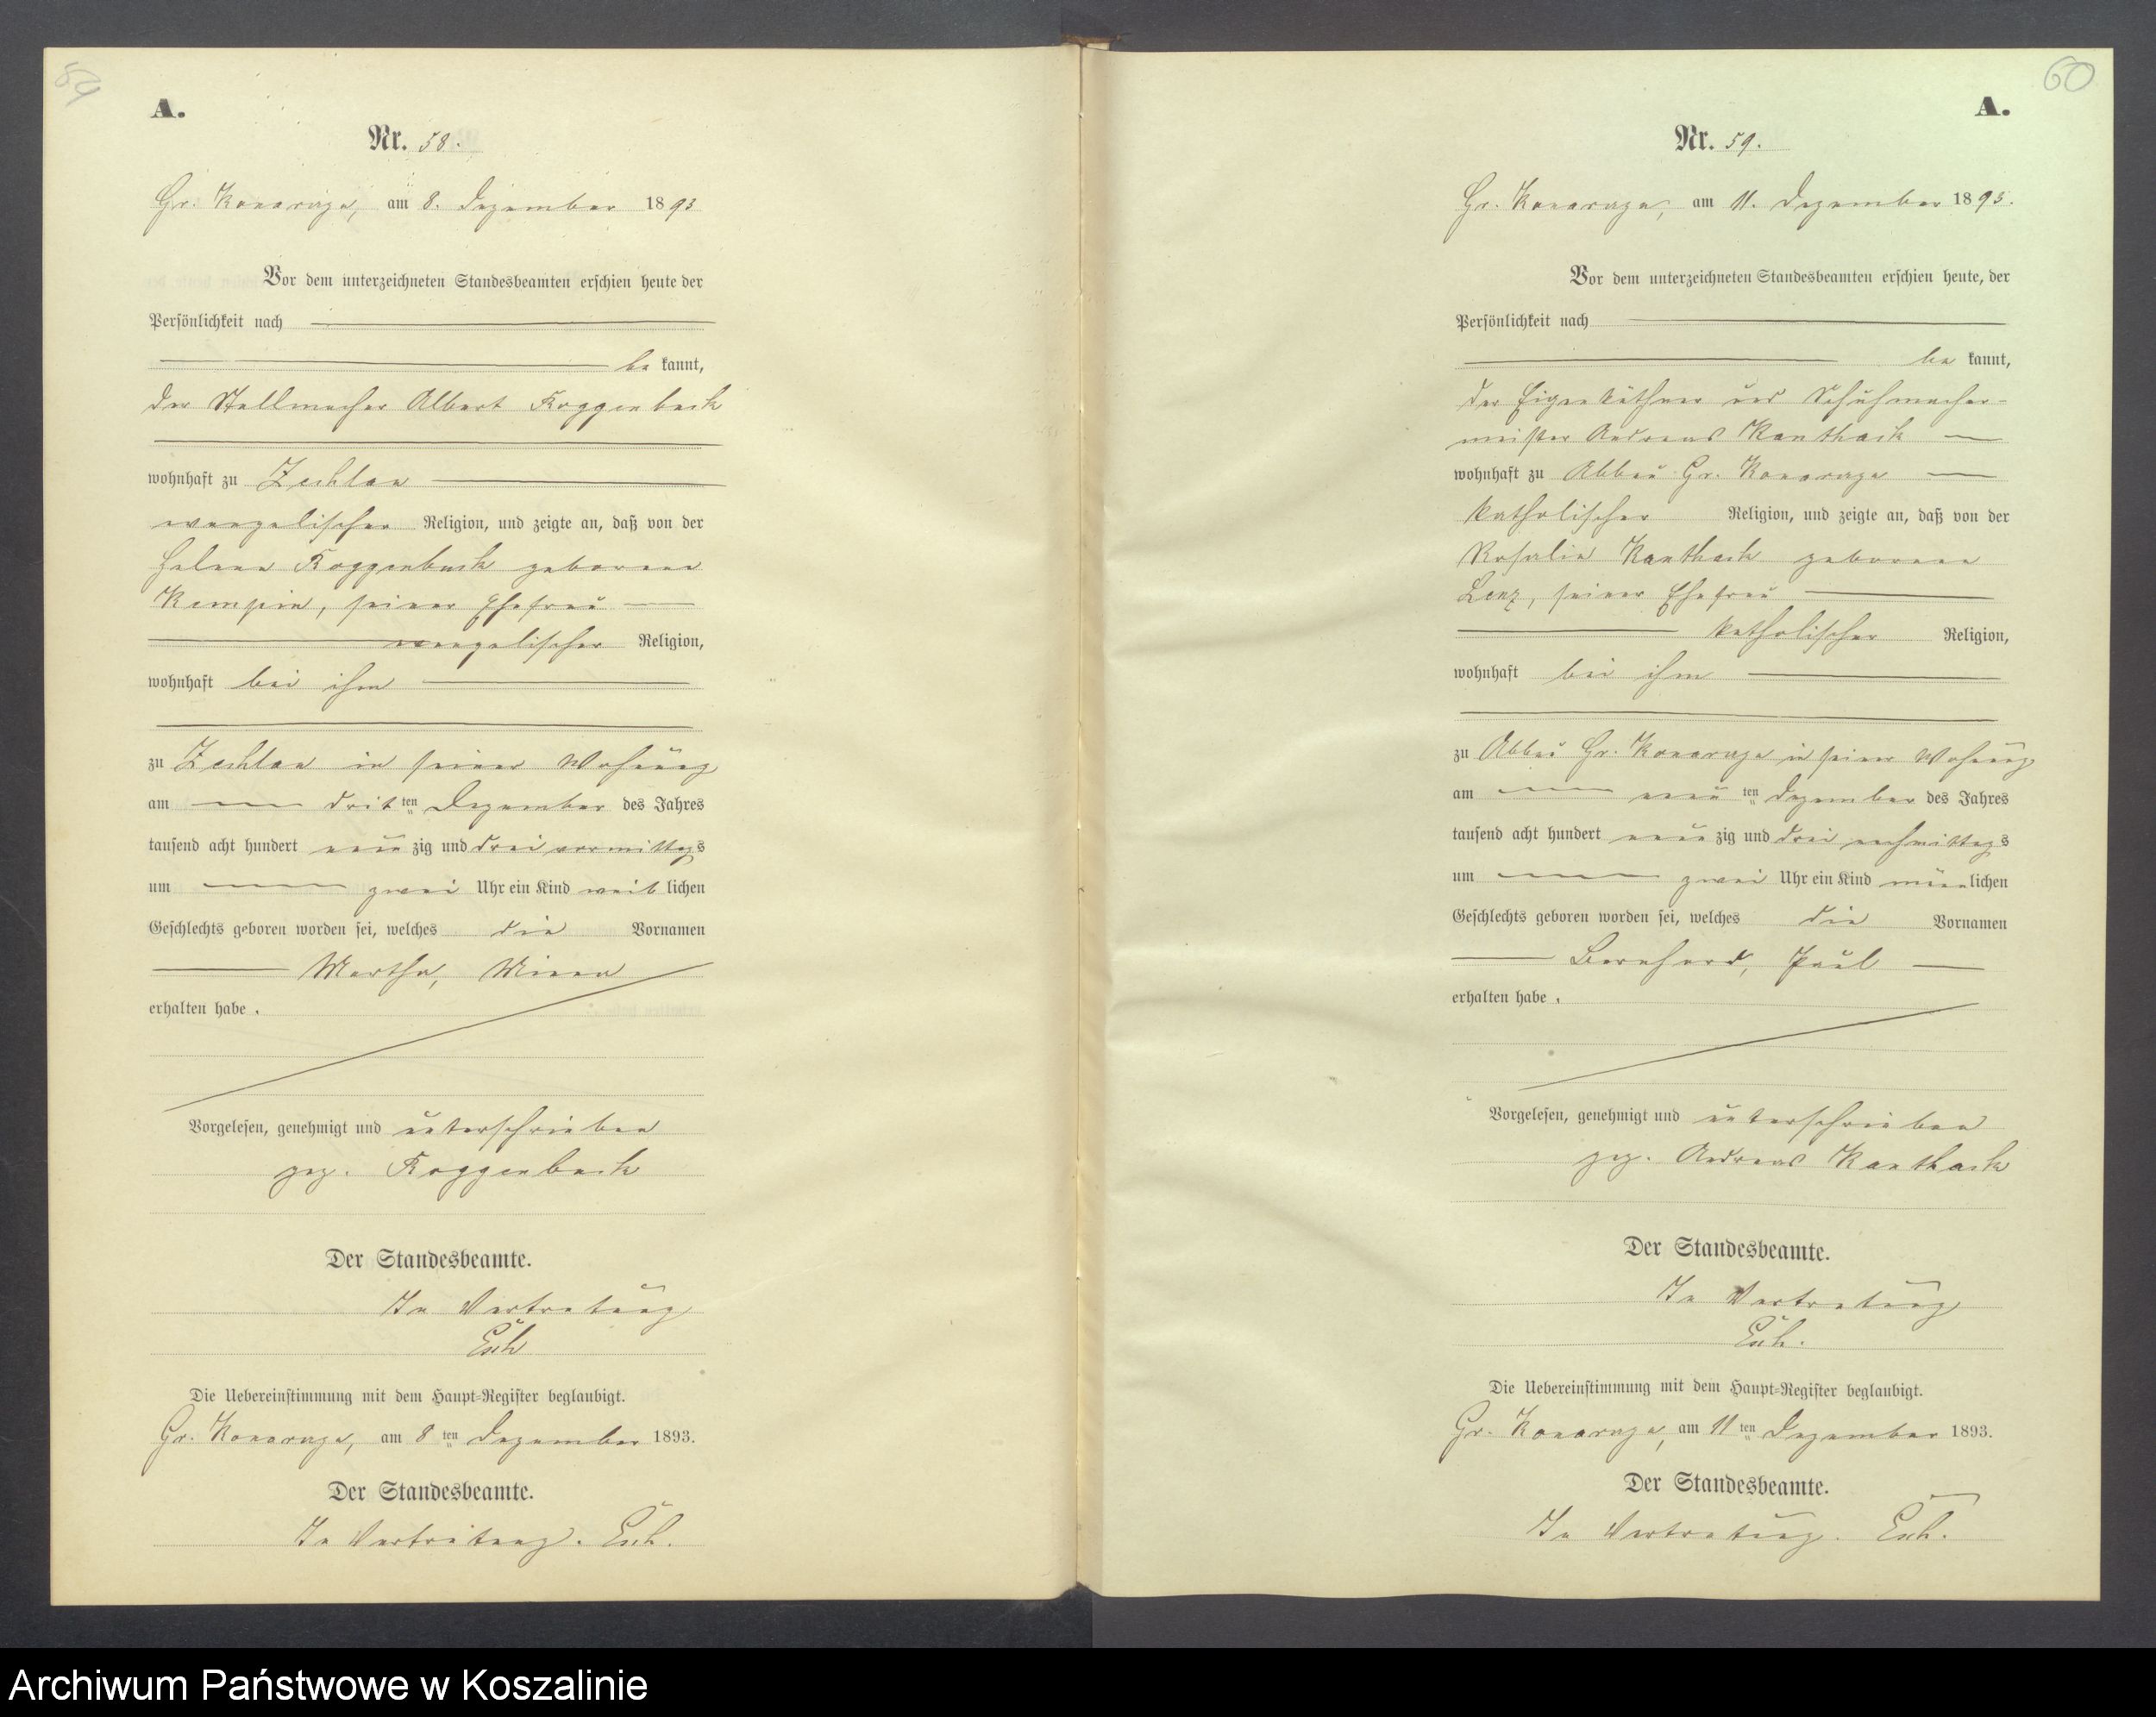 59
A.
Nr. 58.
Gr. Konarzyn, am 8. Dezember 1893
Vor dem unterzeichneten Standesbeamten erschien heute der
Persönlichkeit nach
be kannt,
der Stellmacher Albert Roggenbuck
wohnhaft zu Zechlau
evangelischer Religion, und zeigte an, daß von der
Helene Roggenbuck geborene
Kempin, seiner Ehefrau
evangelischer Religion,
wohnhaft bei ihm
zu Zechlau in seiner Wohnung
am drit ten Dezember des Jahres
tausend acht hundert neun zig und drei vormittags
um zwei Uhr ein Kind weib lichen
Geschlechts geboren worden sei, welches die Vornamen
Martha, Minna
erhalten habe.
Vorgelesen, genehmigt und unterschrieben
gez. Roggenbuck
Der Standesbeamte.
In Vertretung
Die Uebereinstimmung mit dem Haupt-Register beglaubigt.
Gr. Konarzyn, am 8 ten Dezember 1893.
Der Standesbeamte.
In Vertretung.
60
A.
Nr. 59.
Gr. Konarzyn, am 11. Dezember 1893.
Vor dem unterzeichneten Standesbeamten erschien heute, der
Persönlichkeit nach
be kannt,
der Eigenkäthner und Schuhmacher-
meister Andreas Kanthack
wohnhaft zu Abbau Gr. Konarzyn
katholischer Religion, und zeigte an, daß von der
Rosalie Kanthack geborene
Lenz, seiner Ehefrau
katholischer Religion,
wohnhaft bei ihm
zu Abbau Gr. Konarzyn in seiner Wohnung
am neun ten Dezember des Jahres
tausend acht hundert neun zig und drei nachmittags
um zwei Uhr ein Kind männ lichen
Geschlechts geboren worden sei, welches die Vornamen
Bernhard, Paul
erhalten habe.
Vorgelesen, genehmigt und unterschrieben
gez. Andreas Kanthack
Der Standesbeamte.
In Vertretung
Die Uebereinstimmung mit dem Haupt-Register beglaubigt.
Gr. Konarzyn, am 11 ten Dezember 1893.
Der Standesbeamte.
In Vertretung.
Archiwum Państwowe w Koszalinie